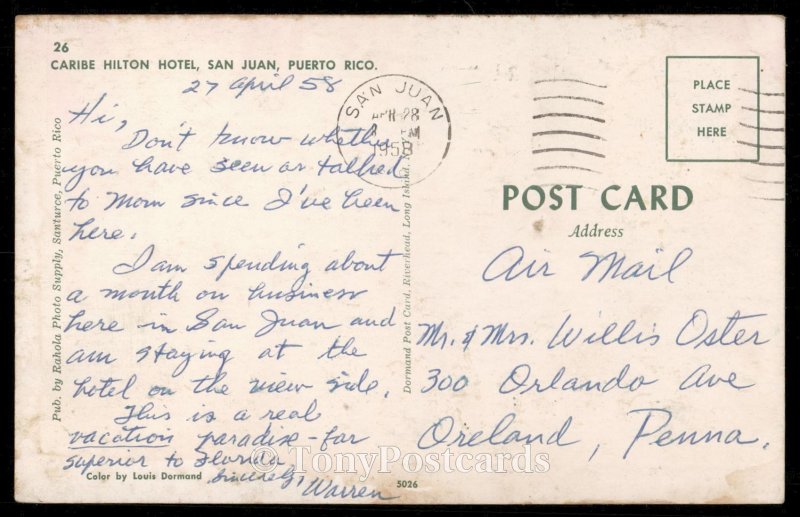 26
CARIBE HILTON HOTEL, SAN JUAN, PUERTO RICO.
27 April 58
Hi,
Don't know whether
you have seen or talked
to Mom since I've been
here.
I am spending about
a month on business
here in San Juan and
am staying at the
hotel on the view side.
This is a real
vacation paradise - far
superior to Florida
Sincerely,
Warren
Color by Louis Dormand
Pub. by Rahola Photo Supply, Santurce, Puerto Rico
Dormand Post Card, Riverhead, Long Island,
SAN JUAN
APR 28
M
1958
PLACE
STAMP
HERE
POST CARD
Address
Air Mail
Mr. & Mrs. Willis Oster
300 Orlando Ave
Oreland, Penna.
5026
© TonyPostcards